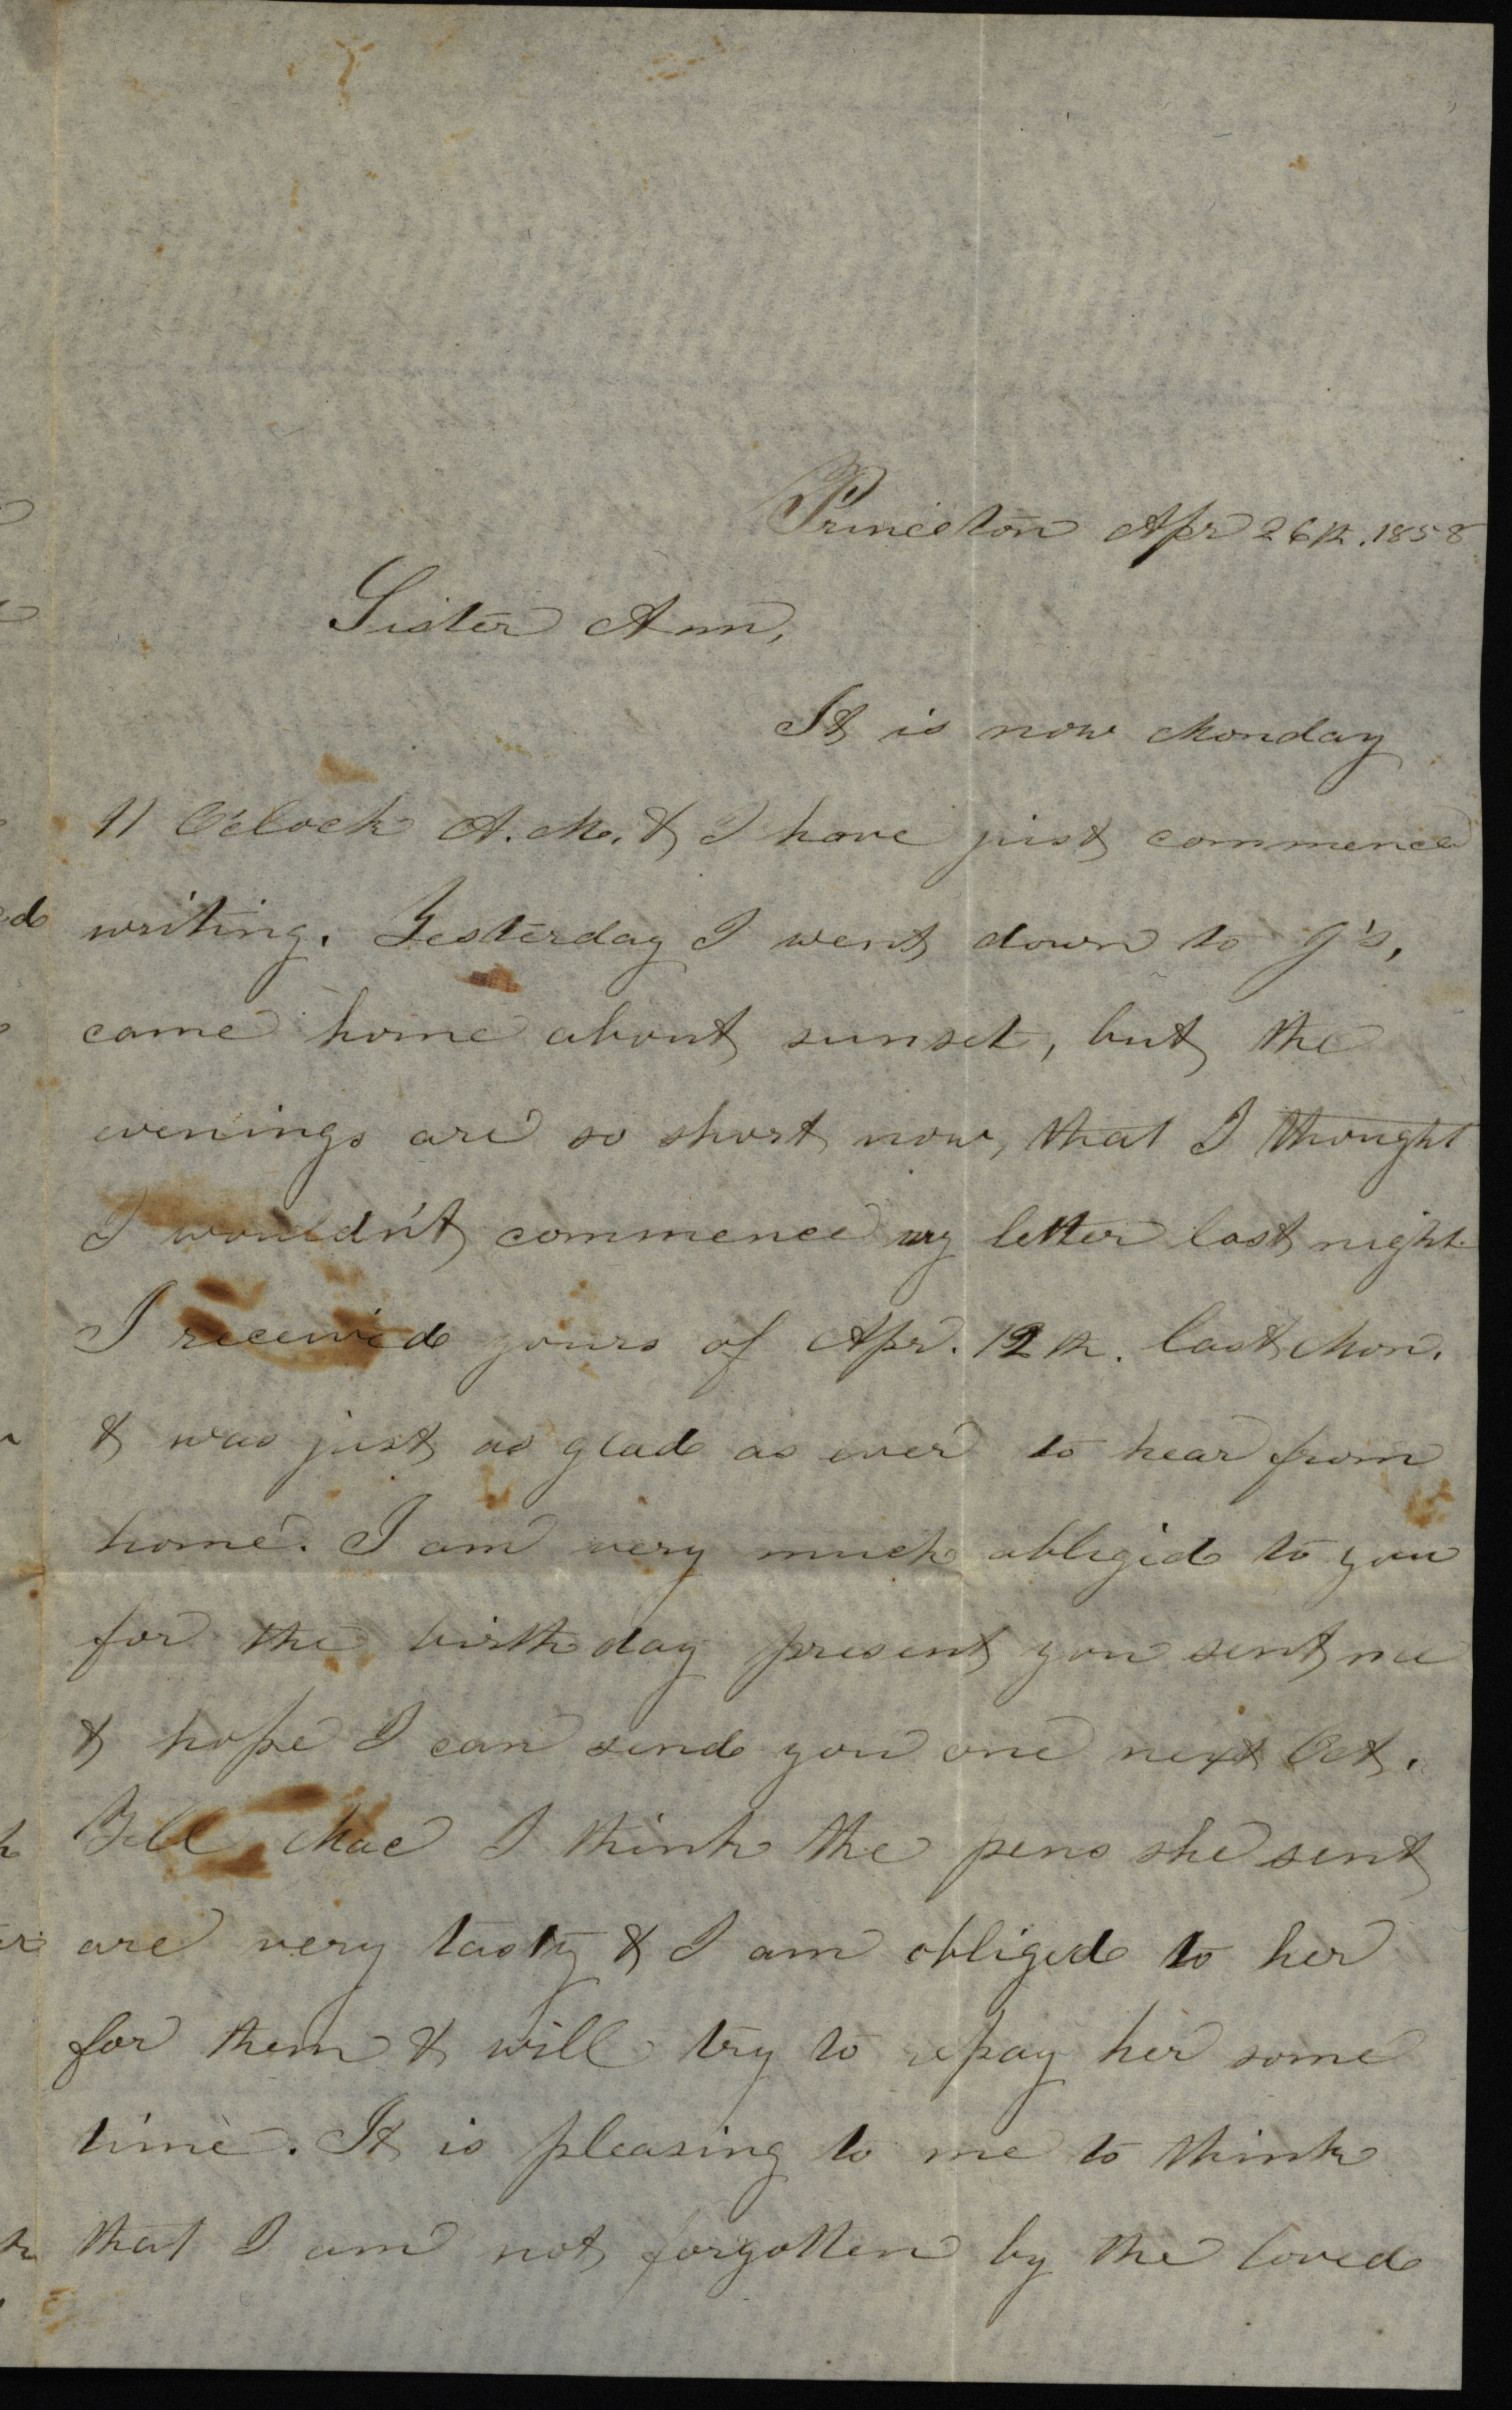 Princeton Apr 26th. 1858
Sister Ann,
It is now Monday
11 O'clock A.M. & I have just commenced
writing. Yesterday I went down to J's,
came home about sunset, but the
evenings are so short now, that I thought
I wouldn't commence my letter last night.
I received yours of Apr. 12th. last Mon.
& was just as glad as ever to hear from
home. I am very much obliged to you
for the birthday present you sent me
& hope I can send you one next Oct.
Tell Mac I think the pens she sent
are very tasty & I am obliged to her
for them & will try to repay her some
time. It is pleasing to me to think
that I am not forgotten by the loved